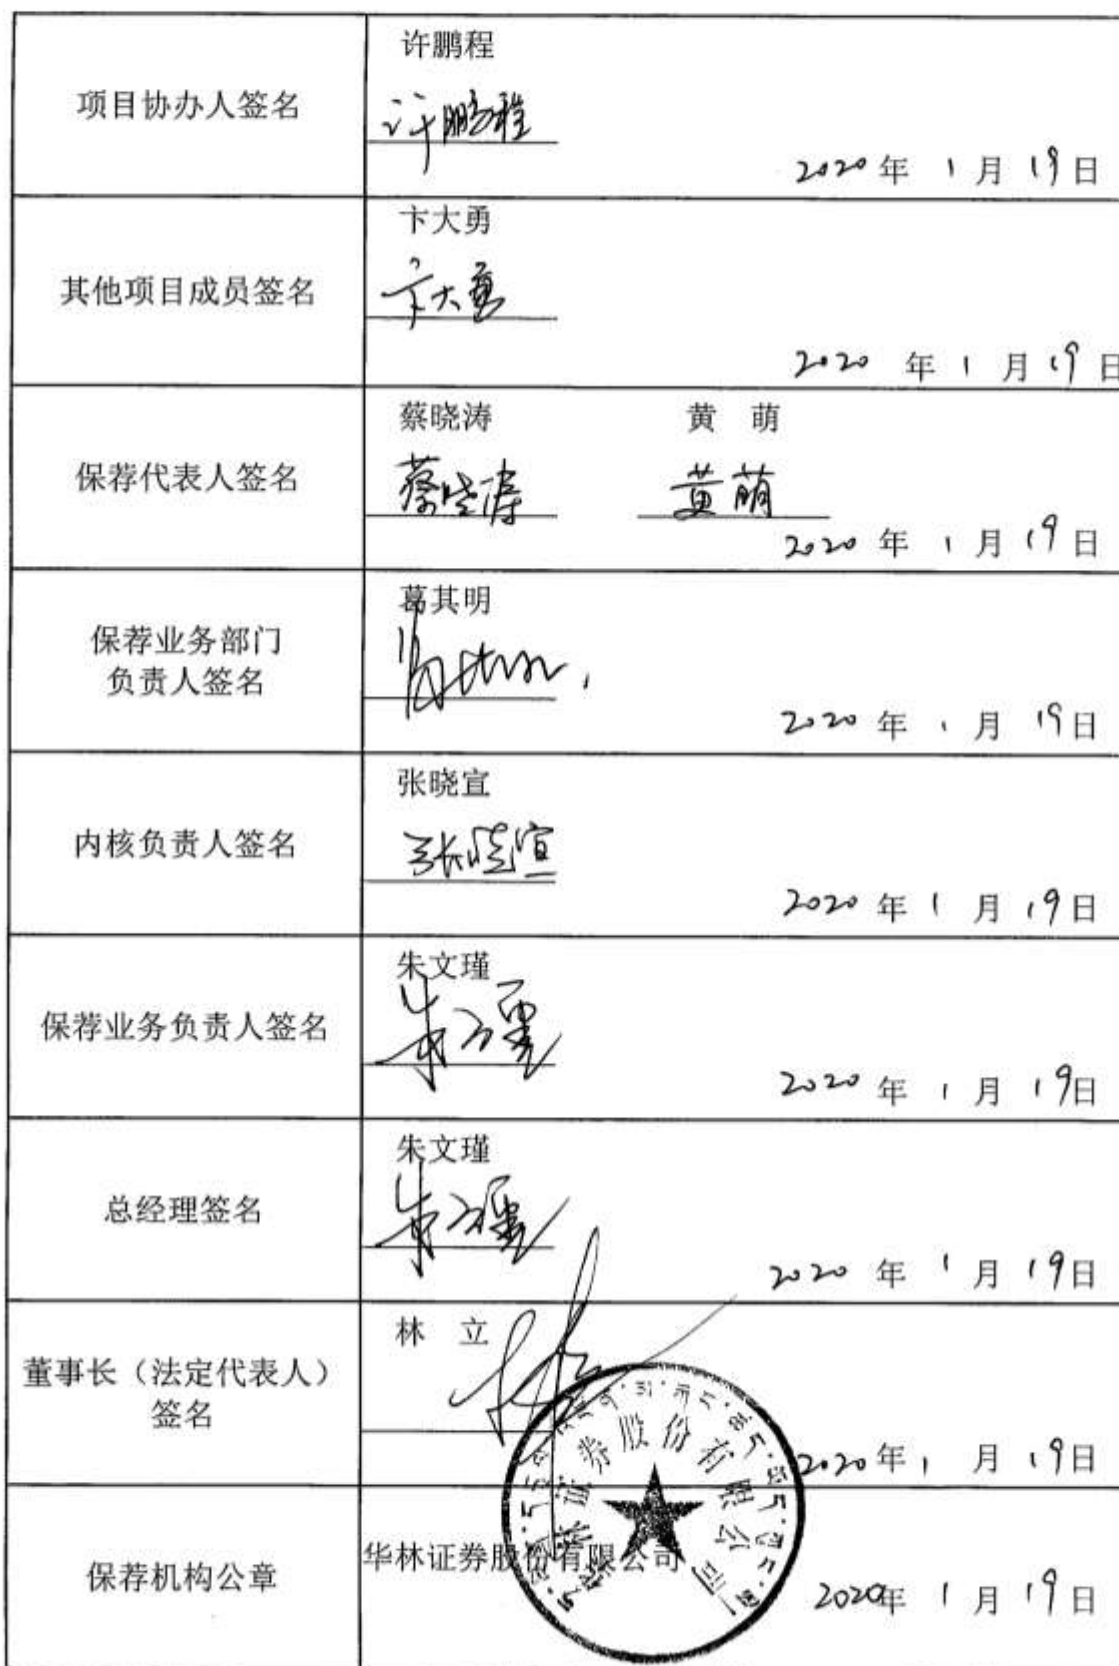 项目协办人签名
许鹏程
许鹏程
2020年 1月 19日
其他项目成员签名
卞大勇
卞大勇
2020 年 1 月 19日
保荐代表人签名
蔡晓涛 黄 萌
蔡晓涛 黄萌
2020 年 1 月 19日
保荐业务部门
负责人签名
葛其明
2020 年 1 月 19日
内核负责人签名
张晓宣
张晓宣
2020 年 1 月 19日
保荐业务负责人签名
朱文瑾
朱文瑾
2020 年 1 月 19日
总经理签名
朱文瑾
朱文瑾
2020 年 1 月 19日
董事长（法定代表人）
签名
林 立
2020年 1 月 19日
保荐机构公章
华林证券股份有限公司
华林证券股份有限公司
2020年 1 月 19日